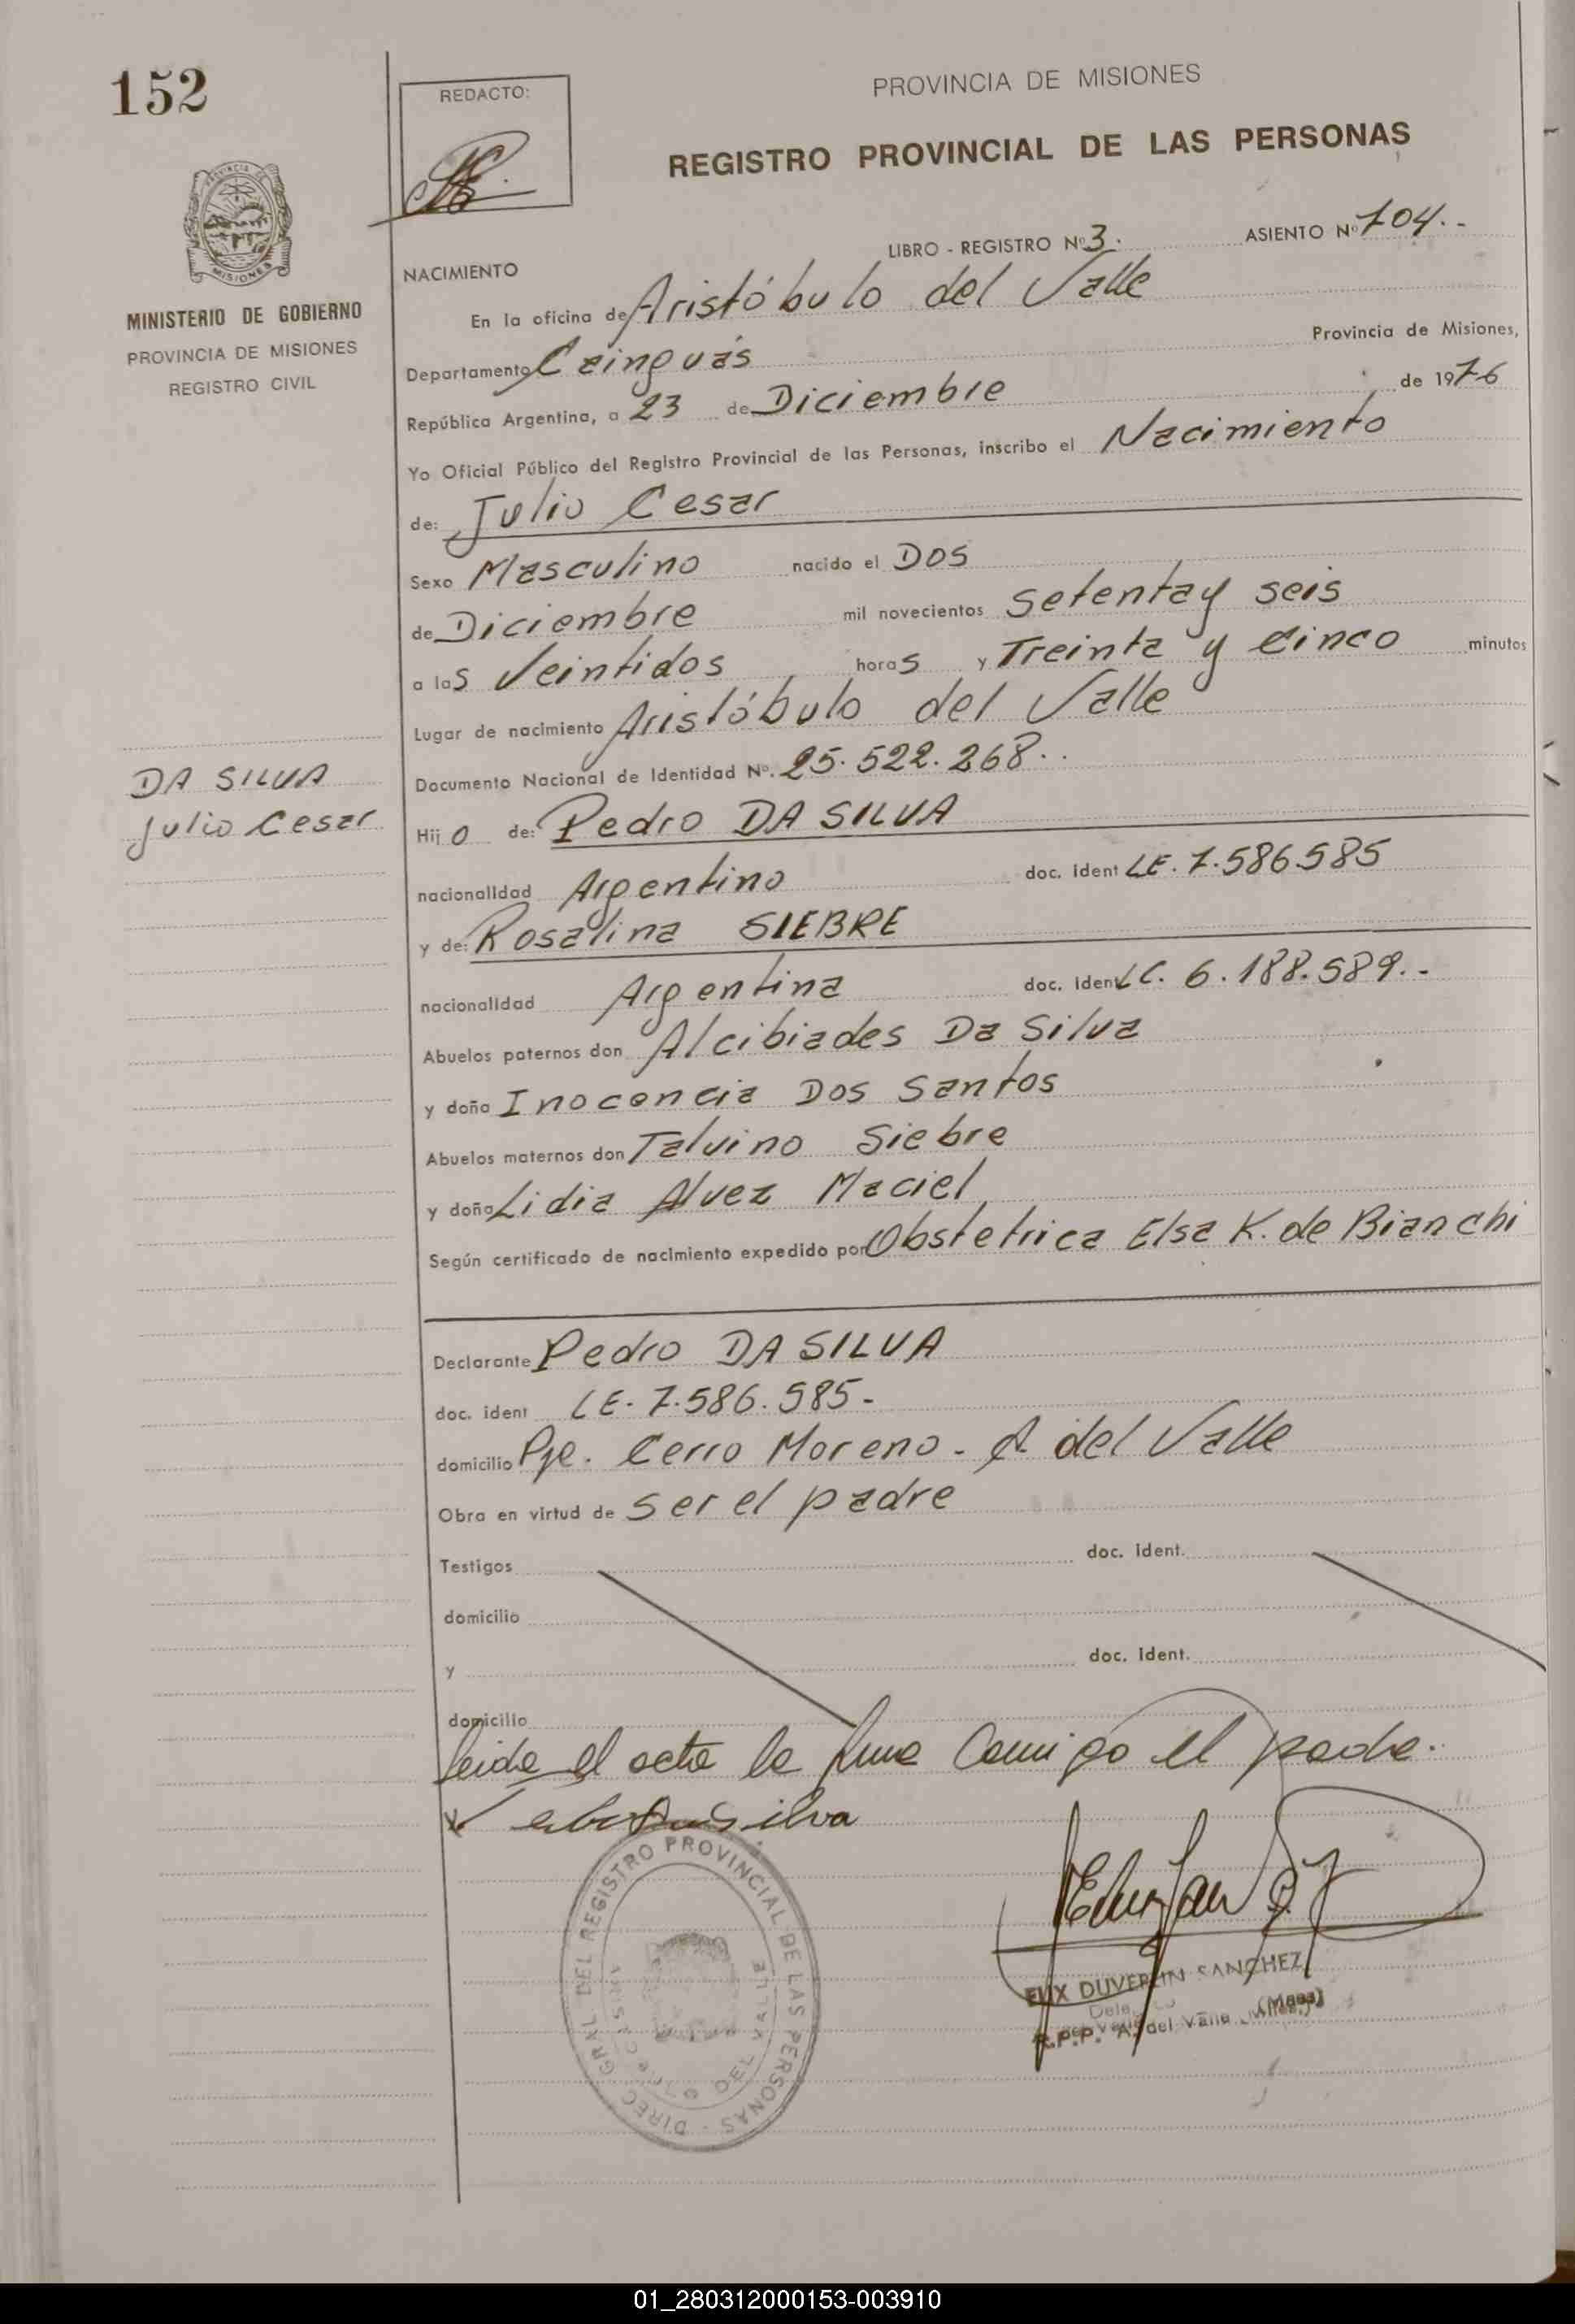 152
REDACTO:
PROVINCIA DE MISIONES
REGISTRO PROVINCIAL DE LAS PERSONAS
PROVINCIA DE
MISIONES
MINISTERIO DE GOBIERNO
PROVINCIA DE MISIONES
REGISTRO CIVIL
LIBRO - REGISTRO Nº 3. ASIENTO Nº 704.-
NACIMIENTO
En la oficina de Aristóbulo del Valle
Departamento Cainguás Provincia de Misiones,
República Argentina, a 23 de Diciembre de 1976
Yo Oficial Público del Registro Provincial de las Personas, inscribo el Nacimiento
de: Julio Cesar
Sexo Masculino nacido el DOS
de Diciembre mil novecientos setenta y seis
a las Veintidos horas y Treinta y Cinco minutos
Lugar de nacimiento Aristóbulo del Valle
Documento Nacional de Identidad Nº. 25.522.268..
DA SILVA
Julio Cesar
Hijo de: Pedro DA SILVA
nacionalidad Argentino doc. ident LE. 7.586.585
y de: Rosalina SIEBRE
nacionalidad Argentina doc. ident LC. 6.188.589.-
Abuelos paternos don Alcibiades Da Silva
y doña Inocencia Dos Santos
Abuelos maternos don Talvino Siebre
y doña Lidia Alvez Maciel
Según certificado de nacimiento expedido por Obstetrica Elsa K. de Bianchi
Declarante Pedro DA SILVA
doc. ident LE. 7.586.585-
domicilio Pje. Cerro Moreno - A. del Valle
Obra en virtud de ser el padre
Testigos doc. ident.
domicilio
y doc. ident.
domicilio
leida el acta la firma Comigo el padre.
silva
DIREC. GRAL DEL REGISTRO PROVINCIAL DE LAS PERSONAS
DEL VALLE
DUVERLIN SANCHEZ
R.P.P. A. del Valle (Mnes)
01_280312000153-003910